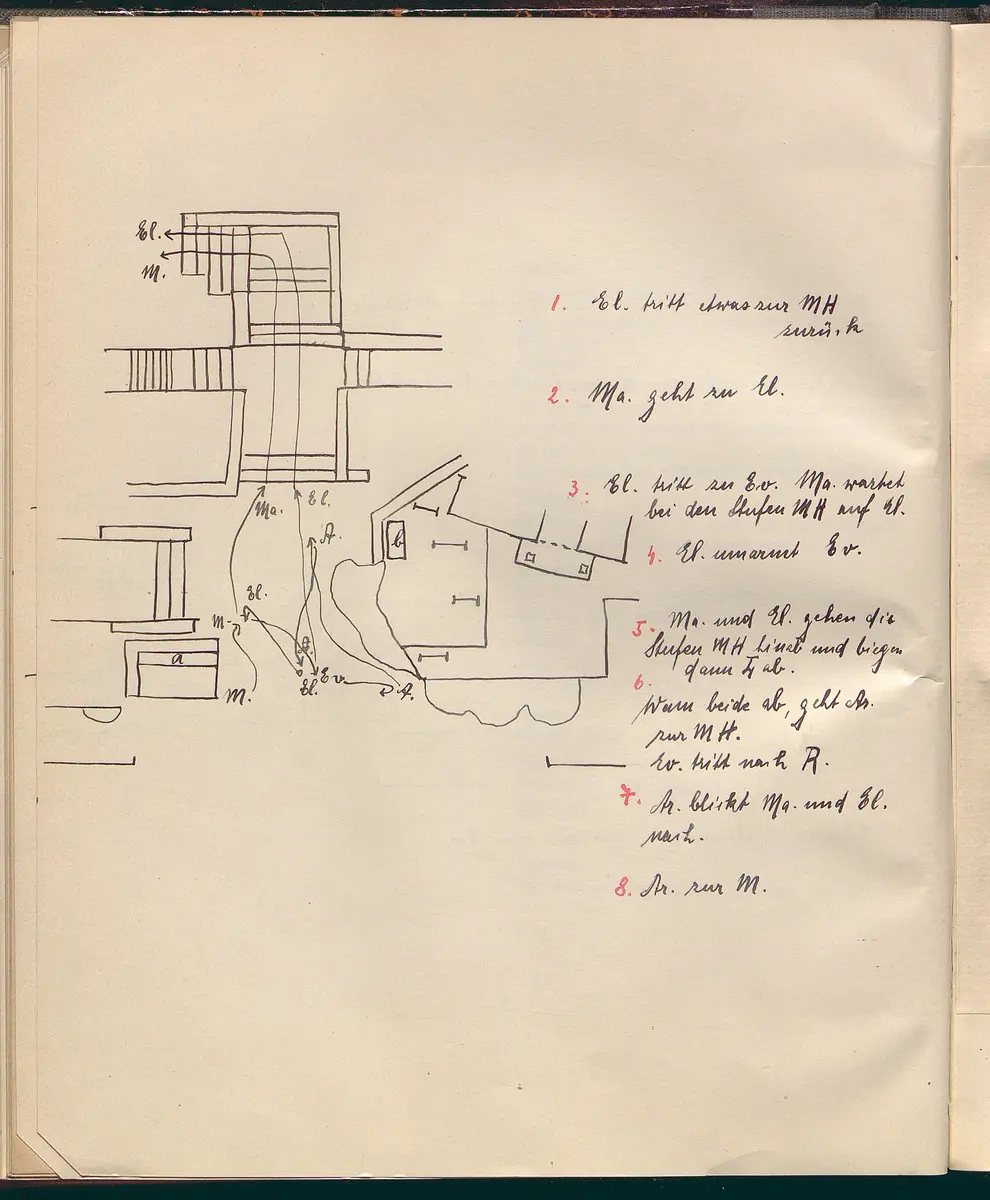 El.
M.
1. El. tritt etwas zur MH
zurück
2. Ma. geht zu El.
3. El. tritt zu Ev. Ma. wartet
bei den Stufen MH auf El.
4. El. umarmt Ev.
5. Ma. und El. gehen die
Stufen MH hinab und biegen
dann ab.
6.
Wenn beide ab, geht Ar.
zur MH.
Ev. tritt nach R.
7. Ar. blickt Ma. und El.
nach.
8. Ar. zur M.
Ma.
El.
A.
b
El.
M.
A.
a
M.
El.
Ev.
A.